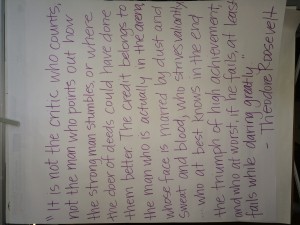 "It is not the critic who counts,
not the man who points out how
the strong man stumbles, or where
the doer of deeds could have done
them better. The credit belongs to
the man who is actually in the arena,
whose face is marred by dust and
sweat and blood, who strives valiantly
who at best knows in the end
the triumph of high achievement,
and who at worst, if he fails, at least
fails while daring greatly"
- Theodore Roosevelt